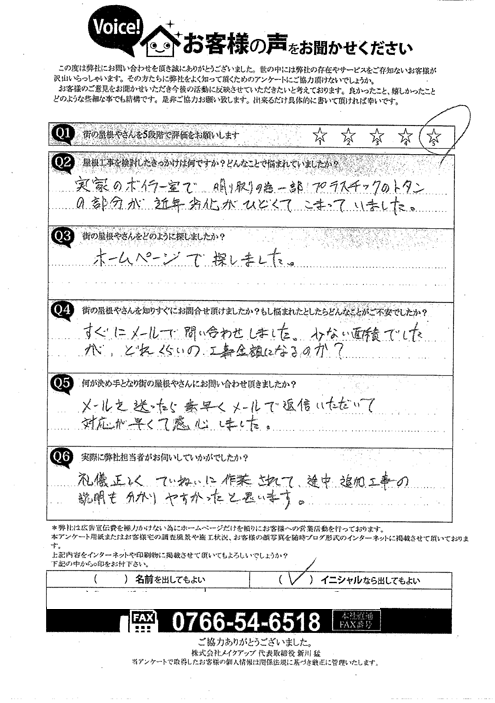 Voice!
お客様の声をお聞かせください
この度は弊社にお問い合わせを頂き誠にありがとうございます。世の中には弊社の存在やサービスをご存知ないお客様が
沢山いらっしゃいます。その方たちに弊社をよく知って頂くためのアンケートにご協力頂けないでしょうか。
お客様のご意見をお聞かせいただき今後の活動に反映させていただきたいと考えております。良かったこと、嬉しかったこと
どのような些細な事でも結構です。是非ご協力お願い致します。出来るだけ具体的に書いて頂ければ幸いです。
Q1 街の屋根やさんを5段階で評価をお願いします ☆ ☆ ☆ ☆ ☆
Q2 屋根工事を検討したきっかけは何ですか?どんなことで悩まれていましたか?
実家のボイラー室で 明り取りの為一部 プラスチックのトタン
の部分が 近年 劣化が ひどくて こまって いました。
Q3 街の屋根やさんをどのように探しましたか?
ホームページで 探しました。
Q4 街の屋根やさんを知りすぐにお問合せ頂けましたか?もし悩まれたとしたらどんなことがご不安でしたか?
すぐに メールで 問い合わせ しました。 少ない面積でした
が、どれくらいの 工事金額になるのか?
Q5 何が決め手となり街の屋根やさんにお問い合わせ頂きましたか?
メールを 送ったら 素早く メールで 返信 いただいて
対応が 早くて 感心 しました。
Q6 実際に弊社担当者がお伺いしていかがでしたか?
礼儀正しく ていねいに 作業 されて、途中、追加工事の
説明も 分かり やすかったと 思います。
*弊社は広告宣伝費を極力かけない為にホームページだけを頼りにお客様への営業活動を行っております。
本アンケート用紙またはお客様宅の調査風景や施工状況、お客様の顔写真を随時ブログ形式のインターネットに掲載させて頂いておりま
す。
上記内容をインターネットや印刷物に掲載させて頂いてもよろしいでしょうか?
下記の中から○印をお付下さい。
( ) 名前を出してもよい (✓) イニシャルなら出してもよい
FAX 0766-54-6518 本社直通 FAX番号
ご協力ありがとうございました。
株式会社メイクアップ 代表取締役 新川 猛
当アンケートで取得したお客様の個人情報は関係法規に基づき厳正に管理いたします。